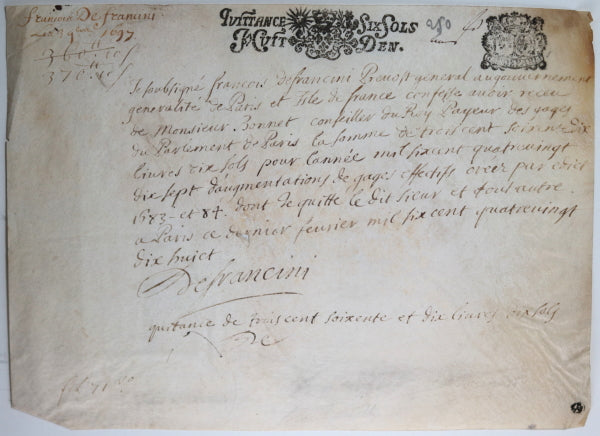 François Defrancini
1697
QUITTANCE SIX SOLS
HUIT DEN.
250
360.10s
370.10s
Je soubsigné françois Defrancini Prevost general au gouvernement
generalité de Paris et Isle de france confesse avoir receu
de Monsieur Bonnet conseiller du Roy Payeur des gages
du Parlement de Paris la somme de trois cent soixente dix
livres dix sols pour l'année mil sixcent quatrevingt
dix sept d'augmentations de gages effectifs créez par edict
1683 et 84. dont je quitte le dit sieur et tous autre
a Paris ce dernier fevrier mil six cent quatrevingt
dix huict
Defrancini
quitance de trois cent soixente et dix livres dix sols